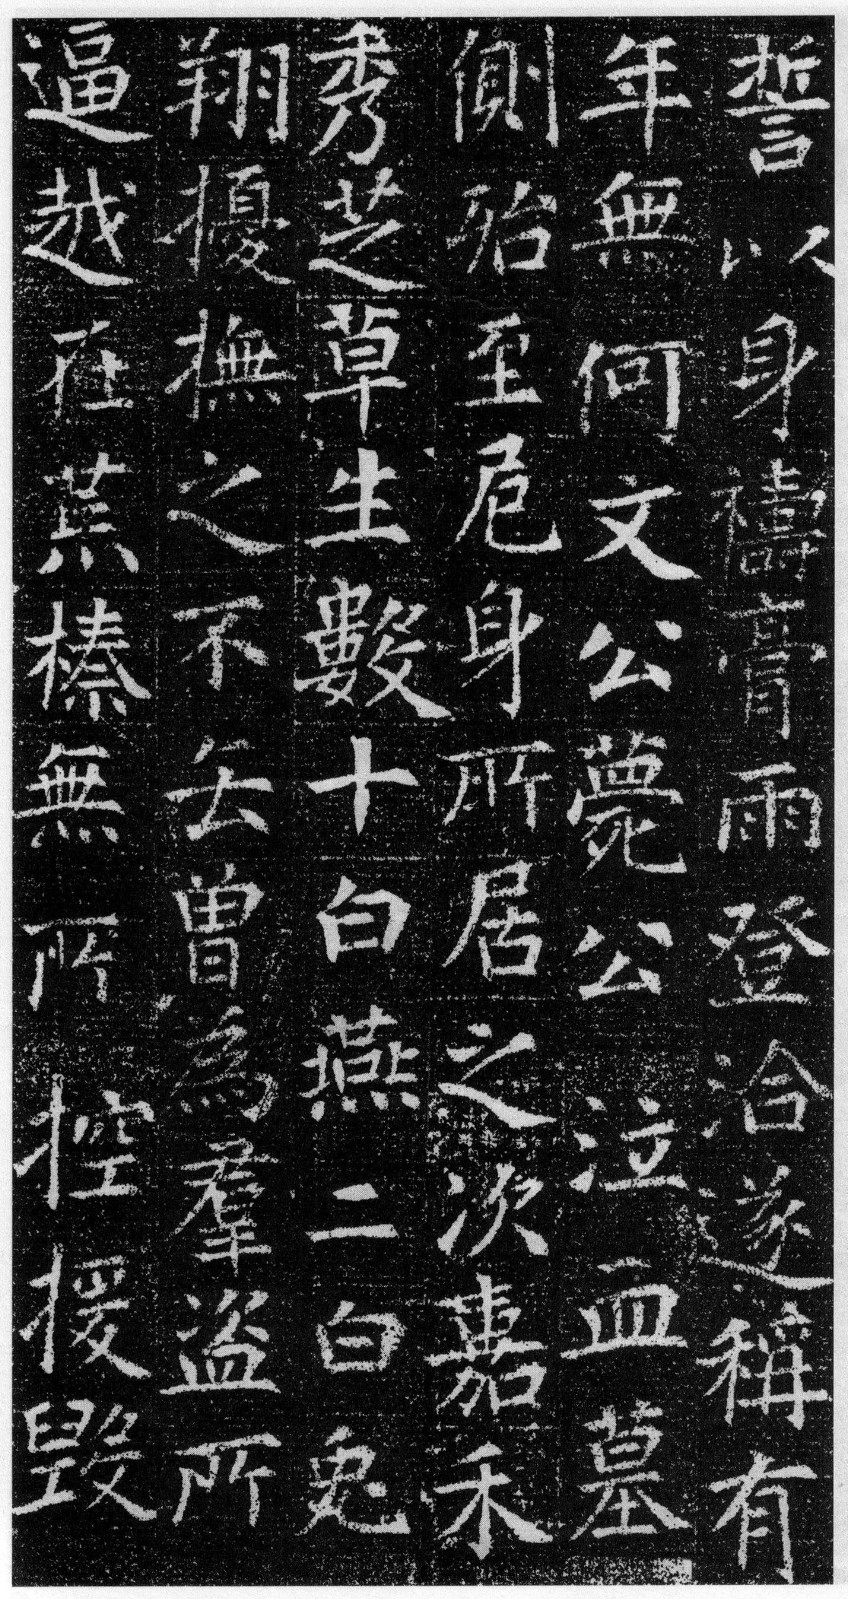 誓以身禱膏雨登洽遂稱有
年無何文公薨公泣血墓
側殆至危身所居之次嘉禾
秀芝草生數十白燕二白兔
翔擾撫之不去曽為羣盜所
逼越在蕪榛無所控援毀